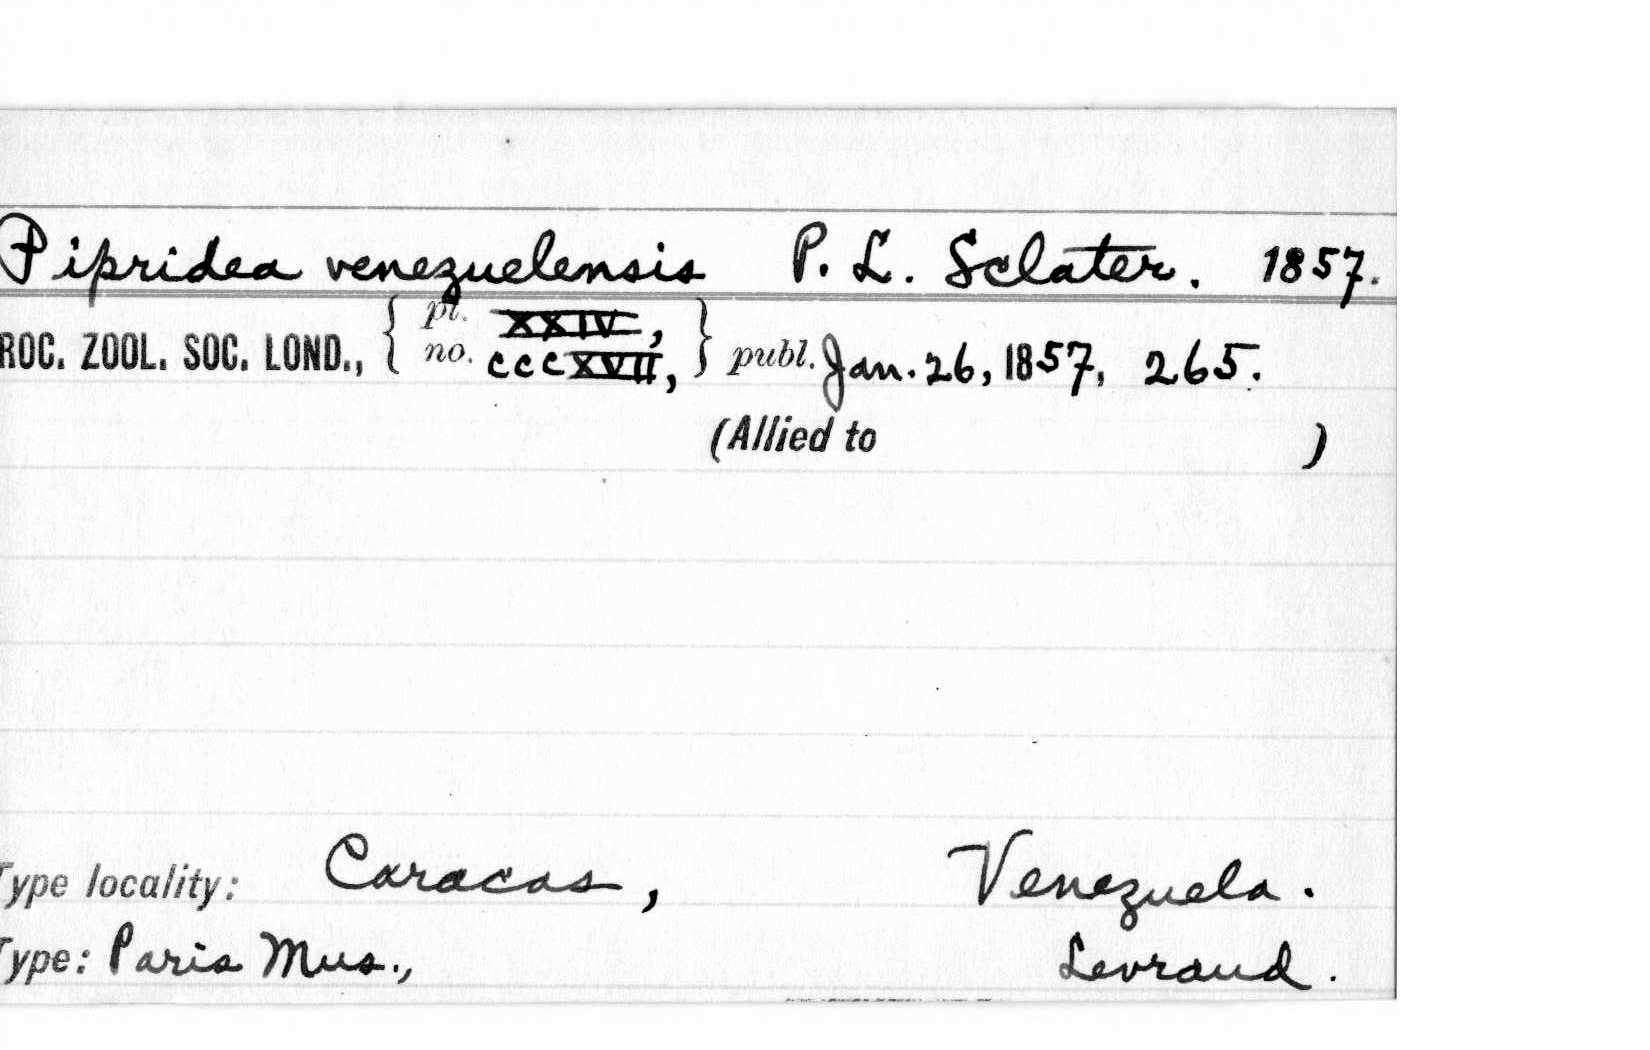 Pipridea venezuelensis P. L. Sclater. 1857.
ROC. ZOOL. SOC. LOND., { pl. XXIV, } publ. Jan. 26, 1857, 265.
no. CCCXVII,
(Allied to )
Type locality: Caracas, Venezuela.
Type: Paris Mus., Levraud.